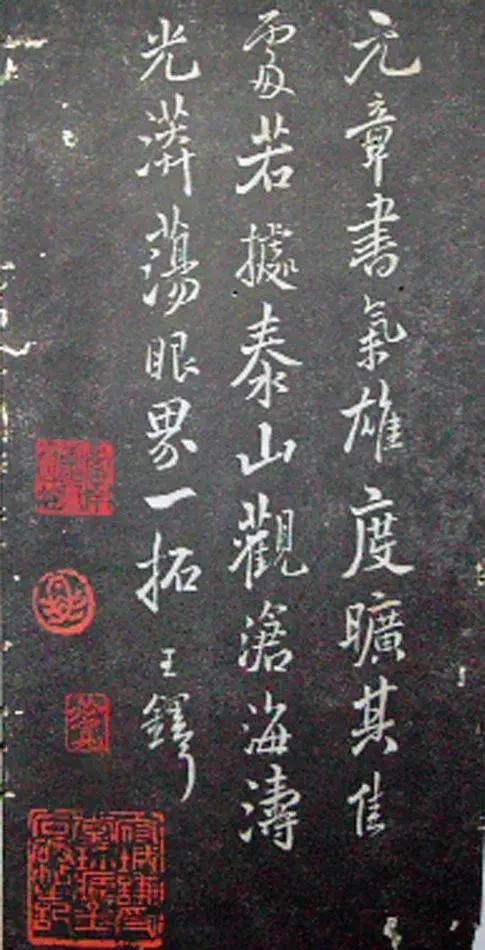 元章書氣雄度曠其佳
處若據泰山觀滄海濤
光漭蕩眼界一拓
王鐸